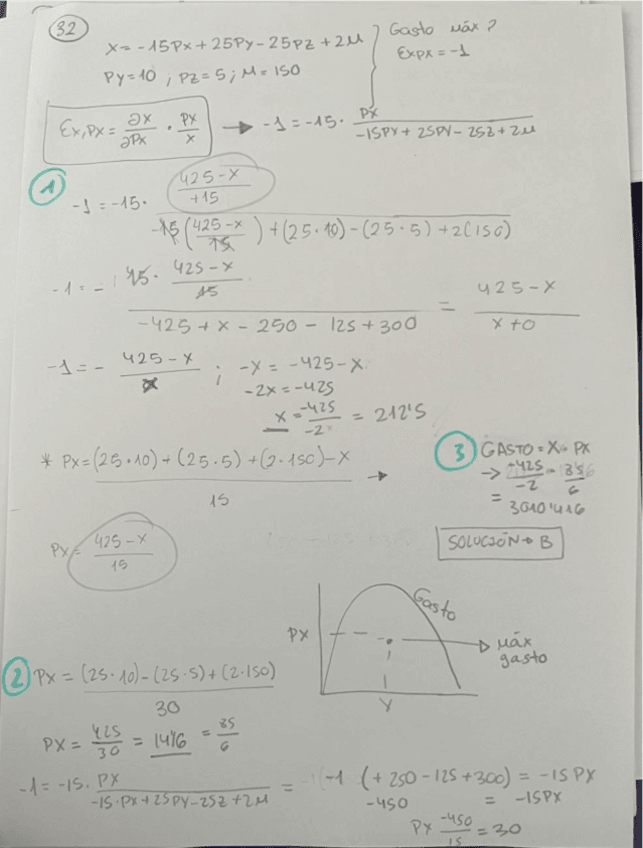 32
X = -15Px + 25Py - 25Pz + 2M
Py = 10 , Pz = 5 ; M = 150
Gasto máx ?
Expx = -1
Ex,Px = ∂X/∂Px · Px/X → -1 = -15 · Px/(-15PX + 25PY - 25Z + 2M)
1
-1 = -15 · ((425-X)/+15)/(-15((425-X)/15) + (25·10) - (25·5) + 2(150))
-1 = - (15 · (425-X)/15)/(-425 + X - 250 - 125 + 300) = (425-X)/(X+0)
-1 = - (425-X)/X ; -X = -425-X
-2X = -425
X = -425/-2 = 212'5
* Px = ((25·10) + (25·5) + (2·150) - X)/15 →
Px = (425-X)/15
3 GASTO = X · PX
→ -425/-2 · 85/6
= 3010'416
SOLUCIÓN → B
Gasto
PX
máx gasto
Y
2 Px = ((25·10) - (25·5) + (2·150))/30
PX = 425/30 = 14'16 = 85/6
-1 = -15 · PX/(-15·PX + 25PY - 25Z + 2M) = -1 (+250 - 125 + 300) = -15PX
-450 = -15PX
PX -450/15 = 30